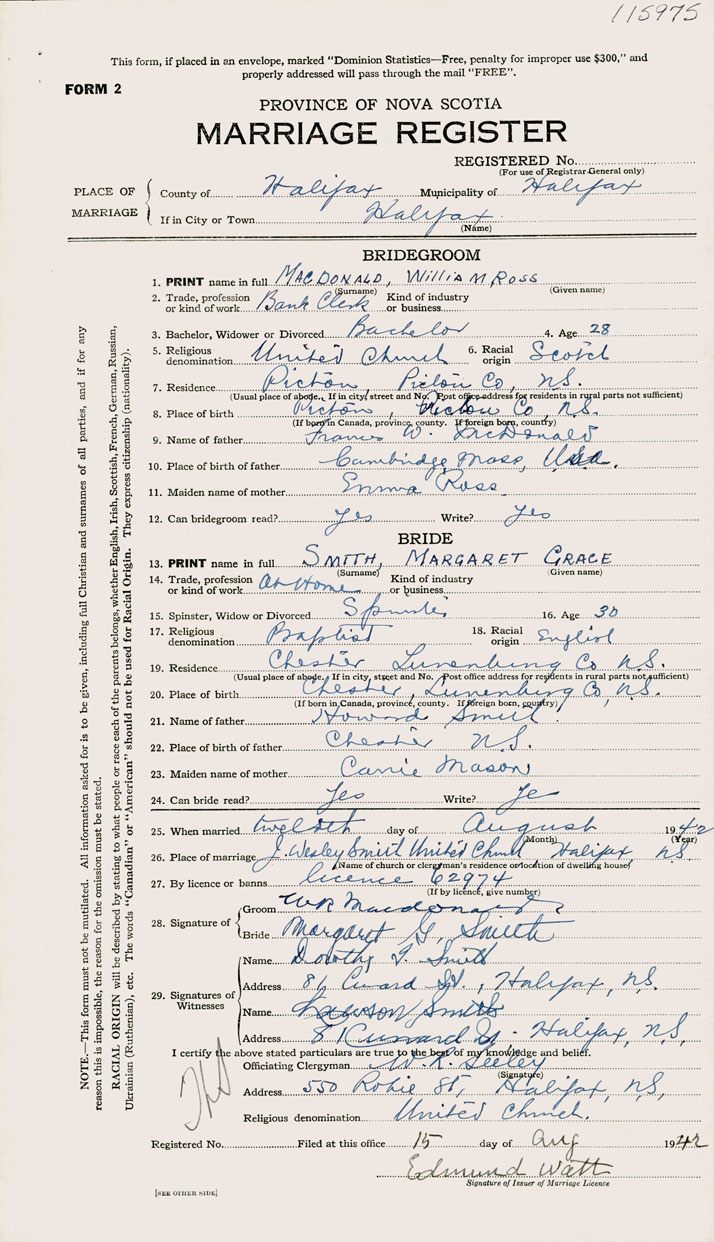 115975
This form, if placed in an envelope, marked "Dominion Statistics—Free, penalty for improper use $300," and
properly addressed will pass through the mail "FREE".
FORM 2
PROVINCE OF NOVA SCOTIA
MARRIAGE REGISTER
REGISTERED No.
(For use of Registrar-General only)
PLACE OF MARRIAGE
County of Halifax Municipality of Halifax
If in City or Town Halifax
(Name)
BRIDEGROOM
1. PRINT name in full MACDONALD, WILLIAM, ROSS
(Surname) (Given name)
2. Trade, profession or kind of work Bank Clerk Kind of industry or business
3. Bachelor, Widower or Divorced Bachelor 4. Age 28
5. Religious denomination United Church 6. Racial origin Scotch
7. Residence Pictou, Pictou Co, N.S.
(Usual place of abode. If in city, street and No. Post office address for residents in rural parts not sufficient)
8. Place of birth Pictou, Pictou Co, N.S.
(If born in Canada, province, county. If foreign born, country)
9. Name of father Francis W. MacDonald
10. Place of birth of father Cambridge, Mass, Usa.
11. Maiden name of mother Emma Ross
12. Can bridegroom read? Yes Write? Yes
BRIDE
13. PRINT name in full SMITH, MARGARET GRACE
(Surname) (Given name)
14. Trade, profession or kind of work At Home Kind of industry or business
15. Spinster, Widow or Divorced Spinster 16. Age 30
17. Religious denomination Baptist 18. Racial origin English
19. Residence Chester Lunenburg Co N.S.
(Usual place of abode. If in city, street and No. Post office address for residents in rural parts not sufficient)
20. Place of birth Chester, Lunenburg Co, N.S.
(If born in Canada, province, county. If foreign born, country)
21. Name of father Howard Smith
22. Place of birth of father Chester N.S.
23. Maiden name of mother Carrie Mason
24. Can bride read? Yes Write? Yes
25. When married twelfth day of August 1942
(Month) (Year)
26. Place of marriage J. Wesley Smith United Church Halifax NS
(Name of church or clergyman's residence or location of dwelling house)
27. By licence or banns licence 62974
(If by licence, give number)
28. Signature of
Groom WR Macdonald
Bride Margaret G. Smith
29. Signatures of Witnesses
Name Dorothy I. Smith
Address 81 Cunard St., Halifax, N.S.
Name Smith
Address 81 Cunard St. Halifax, N.S.
I certify the above stated particulars are true to the best of my knowledge and belief.
Officiating Clergyman W. R. Seeley
(Signature)
Address 550 Robie St, Halifax, N.S,
Religious denomination United Church.
Registered No. Filed at this office 15 day of Aug 1942
Edmund Watt
Signature of Issuer of Marriage Licence
[SEE OTHER SIDE]
NOTE.—This form must not be mutilated. All information asked for is to be given, including full Christian and surnames of all parties, and if for any
reason this is impossible, the reason for the omission must be stated.
RACIAL ORIGIN will be described by stating to what people or race each of the parents belongs, whether English, Irish, Scottish, French, German, Russian,
Ukrainian (Ruthenian), etc. The words "Canadian" or "American" should not be used for Racial Origin. They express citizenship (nationality).